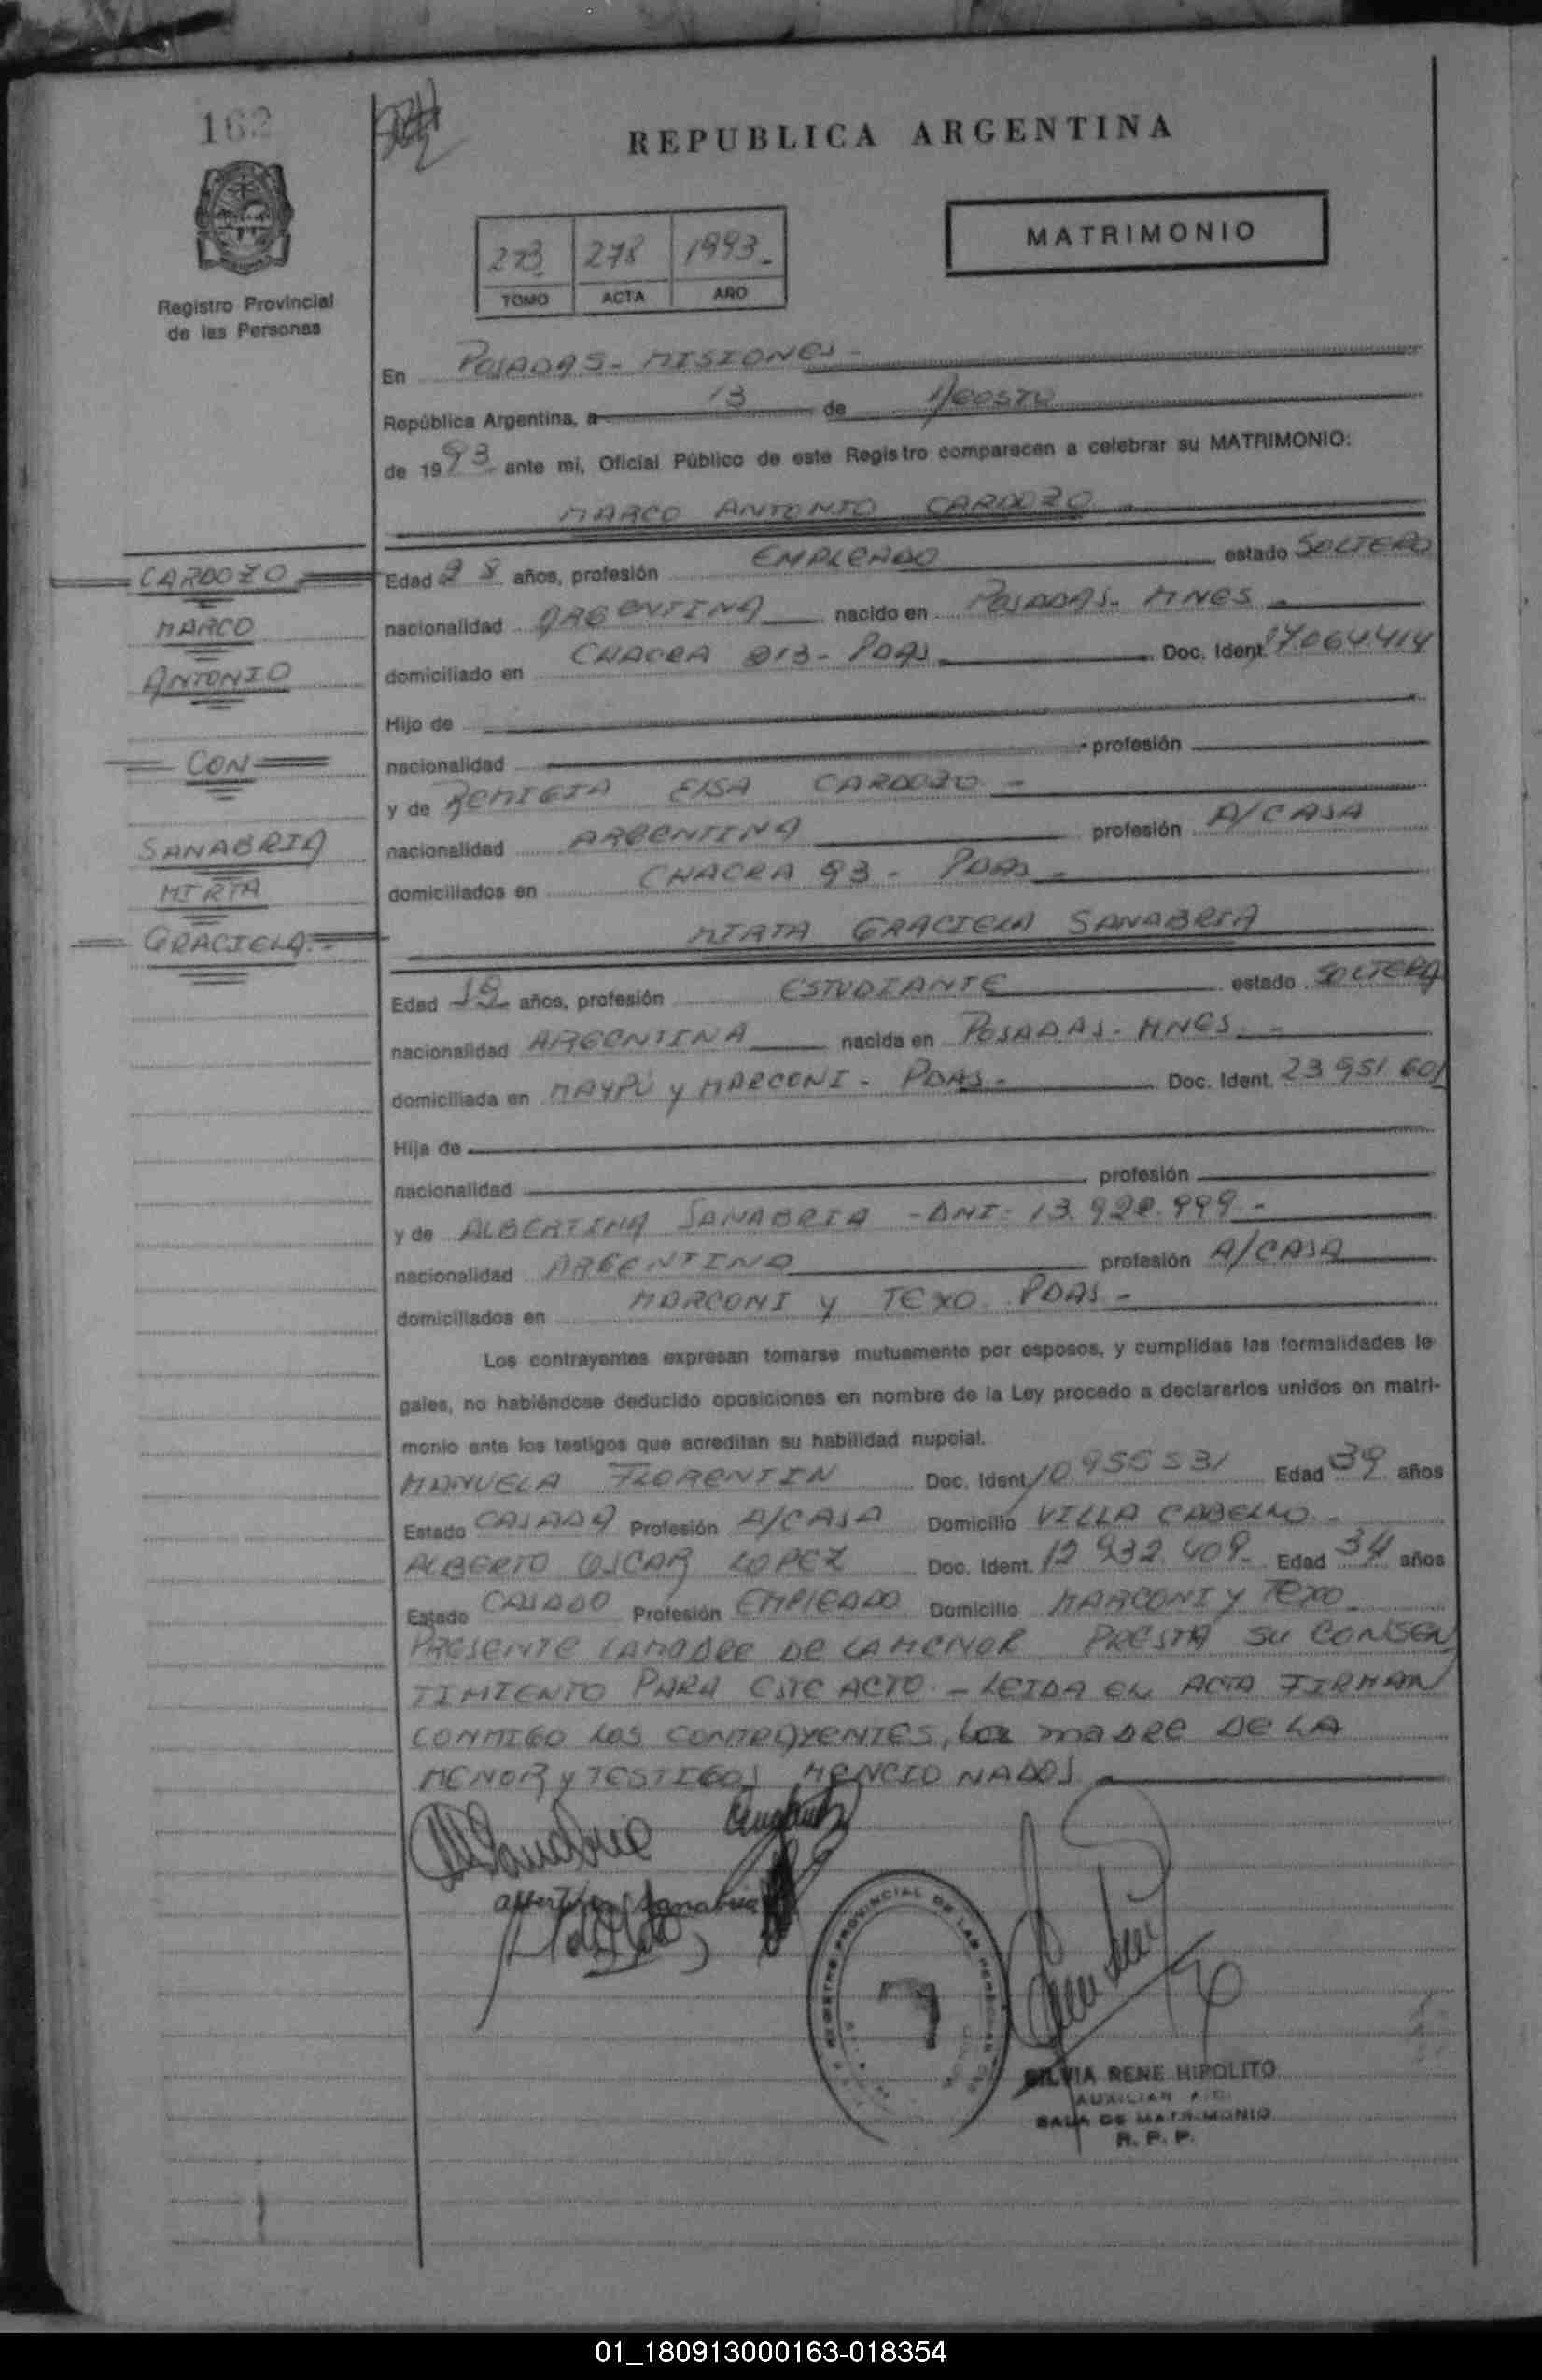 162
REPUBLICA ARGENTINA
MATRIMONIO
273 278 1993.-
TOMO ACTA AÑO
Registro Provincial
de las Personas
En POSADAS- MISIONES-
República Argentina, a 13 de AGOSTO
de 1993 ante mí, Oficial Público de este Registro comparecen a celebrar su MATRIMONIO:
MARCO ANTONIO CARDOZO.-
CARDOZO
MARCO
ANTONIO
CON
SANABRIA
MIRTA
GRACIELA.-
Edad 28 años, profesión EMPLEADO estado SOLTERO
nacionalidad ARGENTINA nacido en POSADAS- MNES.-
domiciliado en CHACRA 213- PDAS Doc. Ident. 17.064.414
Hijo de
nacionalidad profesión
y de REMIGIA ELSA CARDOZO.-
nacionalidad ARGENTINA profesión A/CASA
domiciliados en CHACRA 93- PDAS.-
MIRTA GRACIELA SANABRIA
Edad 19 años, profesión ESTUDIANTE estado SOLTERA
nacionalidad ARGENTINA nacida en POSADAS- MNES.-
domiciliada en MAYPÚ y MARCONI- PDAS- Doc. Ident. 23 951 601
Hija de
nacionalidad profesión
y de ALBERTINA SANABRIA -DNI- 13.922.999-
nacionalidad ARGENTINA profesión A/CASA
domiciliados en MARCONI y TEXO PDAS-
Los contrayentes expresan tomarse mutuamente por esposos, y cumplidas las formalidades le-
gales, no habiéndose deducido oposiciones en nombre de la Ley procedo a declararlos unidos en matri-
monio ante los testigos que acreditan su habilidad nupcial.
MANUELA FLORENTIN Doc. Ident. 10 956 531 Edad 39 años
Estado CASADA Profesión A/CASA Domicilio VILLA CABELLO-
ALBERTO OSCAR LOPEZ Doc. Ident. 12 932.409- Edad 34 años
Estado CASADO Profesión EMPLEADO Domicilio MARCONI y TEXO
PRESENTE LA MADRE DE LA MENOR PRESTA SU CONSEN
TIMIENTO PARA ESTE ACTO - LEIDA EL ACTA FIRMAN
CONMIGO LOS CONTRAYENTES, La MADRE DE LA
MENOR y TESTIGOS MENCIONADOS
Albertina Sanabria
REGISTRO PROVINCIAL DE LAS PERSONAS
SILVIA RENE HIPOLITO
AUXILIAR
SALA DE MATRIMONIO
R. P. P.
01_180913000163-018354